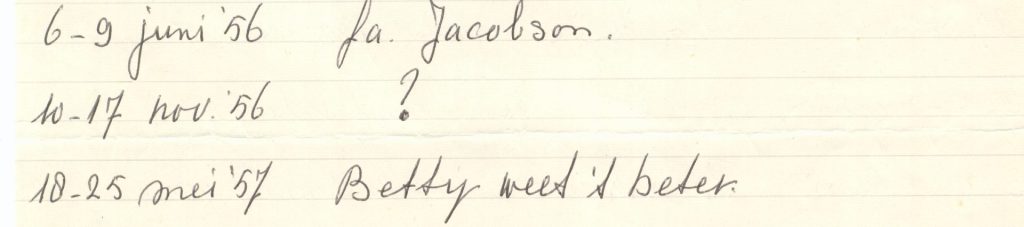 6-9 juni '56 fa. Jacobson.
10-17 nov. '56 ?
18-25 mei '57 Betty weet 't beter.